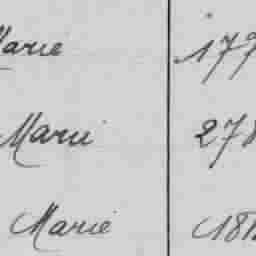 Marie 179
Marie 278
Marie 181